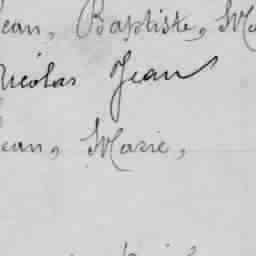 Jean, Baptiste, Ma
Nicolas Jean
Jean, Marie,